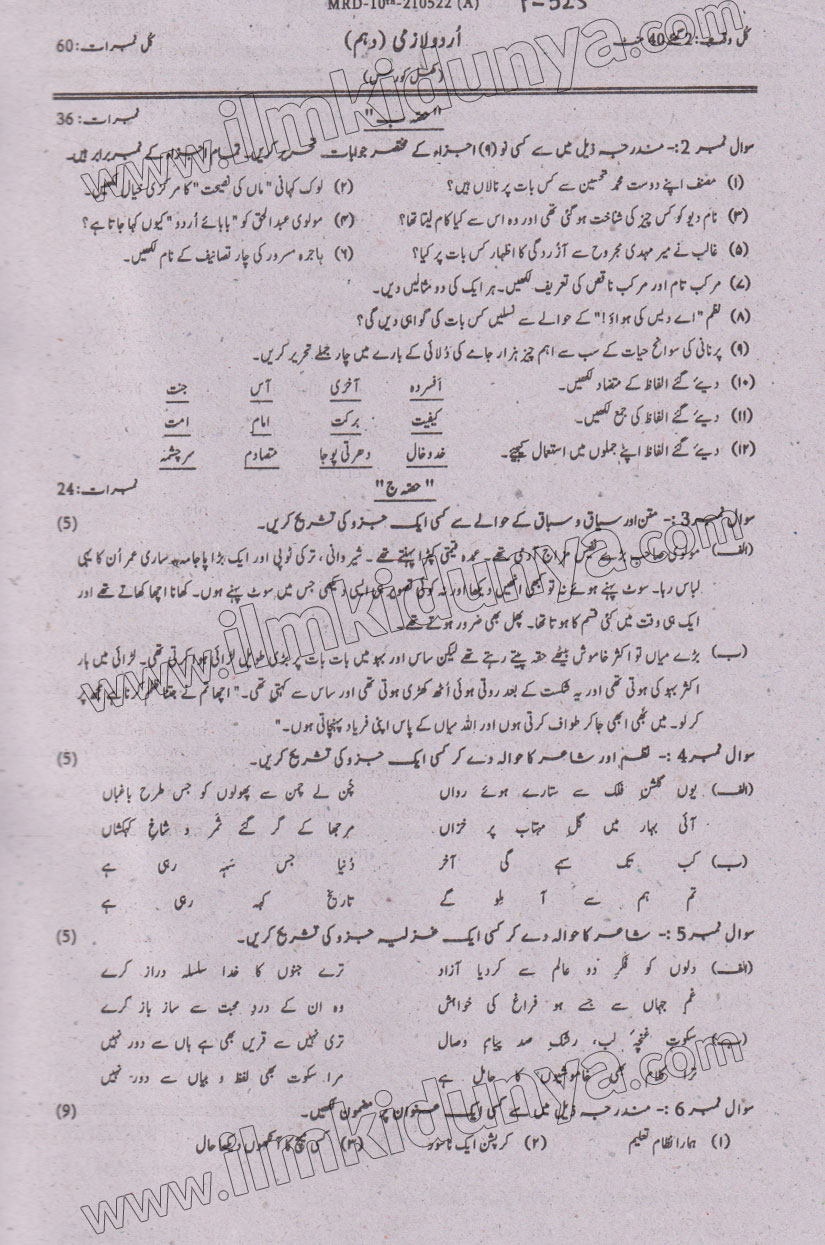 MRD-10th-210522 (A)
کُل وقت: 2 گھنٹے 40 منٹ اُردو لازمی (دہم) کل نمبرات: 60
"حصّہ ب" نمبرات: 36
سوال نمبر 2:- مندرجہ ذیل میں سے کسی نو (۹) اجزاء کے مختصر جوابات تحریر کریں۔ تمام اجزاء کے نمبر برابر ہیں۔
(۱) مصنف اپنے دوست محمد تحسین سے کس بات پر نالاں ہیں؟ (۲) لوک کہانی "ماں کی نصیحت" کا مرکزی خیال لکھیں۔
(۳) نام دیو کو کس چیز کی شناخت ہو گئی تھی اور وہ اس سے کیا کام لیتا تھا؟ (۴) مولوی عبد الحق کو "بابائے اُردو" کیوں کہا جاتا ہے؟
(۵) غالب نے میر مہدی مجروح سے آزردگی کا اظہار کس بات پر کیا؟ (۶) ہاجرہ مسرور کی چار تصانیف کے نام لکھیں۔
(۷) مرکب تام اور مرکب ناقص کی تعریف لکھیں۔ ہر ایک کی دو مثالیں دیں۔
(۸) نظم "اے دیس کی ہواؤ!" کے حوالے سے نسلیں کس بات کی گواہی دیں گی؟
(۹) پرنانی کی سوانح حیات کے سب سے اہم چیز ہزار جامے کی دُلائی کے بارے میں چار جملے تحریر کریں۔
(۱۰) دیئے گئے الفاظ کے متضاد لکھیں۔ افسردہ آخری آس جنت
(۱۱) دیئے گئے الفاظ کی جمع لکھیں۔ کیفیت برکت امام امت
(۱۲) دیئے گئے الفاظ اپنے جملوں میں استعمال کیجیے۔ خدوخال دھرتی پوجا متصادم سرچشمہ
"حصّہ ج" نمبرات: 24
سوال نمبر 3:- متن اور سیاق و سباق کے حوالے سے کسی ایک جزو کی تشریح کریں۔ (5)
(الف) مولوی صاحب بڑے نفیس مزاج آدمی تھے۔ عمدہ قیمتی کپڑا پہنتے تھے۔ شیروانی، ترکی ٹوپی اور ایک بڑا پاجامہ ساری عمر اُن کا یہی
لباس رہا۔ سوٹ پہنے ہوئے نہ تو کبھی انھیں دیکھا اور نہ کوئی تصویر ہی ایسی دیکھی جس میں سوٹ پہنے ہوں۔ کھانا اچھا کھاتے تھے اور
ایک ہی وقت میں کئی قسم کا ہوتا تھا۔ پھل بھی ضرور ہوتے تھے۔
(ب) بڑے میاں تو اکثر خاموش بیٹھے حقہ پیتے رہتے تھے لیکن ساس اور بہو میں بات بات پر بڑی طویل لڑائی ہوا کرتی تھی۔ لڑائی میں ہار
اکثر بہو کی ہوتی تھی اور یہ شکست کے بعد روتی ہوئی اُٹھ کھڑی ہوتی تھی اور ساس سے کہتی تھی۔ "اچھا تم نے جتنا ظلم کرنا ہے مجھ پر
کر لو۔ میں بھی ابھی جا کر طواف کرتی ہوں اور اللہ میاں کے پاس اپنی فریاد پہنچاتی ہوں۔"
سوال نمبر 4:- نظم اور شاعر کا حوالہ دے کر کسی ایک جزو کی تشریح کریں۔ (5)
(الف) یوں گلشنِ فلک سے ستارے ہوئے رواں چُن لے چمن سے پھولوں کو جس طرح باغباں
آئی بہار میں گلِ مہتاب پر خزاں مرجھا کے گر گئے ثمر و شاخِ کہکشاں
(ب) کب تک سہے گی آخر دُنیا جس سہہ رہی ہے
تم ہم سے آ ملو گے تاریخ کہہ رہی ہے
سوال نمبر 5:- شاعر کا حوالہ دے کر کسی ایک غزلیہ جزو کی تشریح کریں۔ (5)
(الف) دلوں کو فکرِ دو عالم سے کر دیا آزاد ترے جنوں کا خدا سلسلہ دراز کرے
غم جہاں سے جسے ہو فراغ کی خواہش وہ ان کے دردِ محبت سے ساز باز کرے
(ب) سکوت غنچۂ لب، رشک صد پیام وصال تری نہیں سے قریں بھی ہے ہاں سے دور نہیں
ترا کلام بھی خاموشیوں کا حامل ہے مرا سکوت بھی لفظ و بیاں سے دور نہیں
سوال نمبر 6:- مندرجہ ذیل میں سے کسی ایک عنوان پر مضمون لکھیں۔ (9)
(۱) ہمارا نظام تعلیم (۲) کرپشن ایک ناسور (۳) کسی میچ کا آنکھوں دیکھا حال
www.ilmkidunya.com
www.ilmkidunya.com
www.ilmkidunya.com